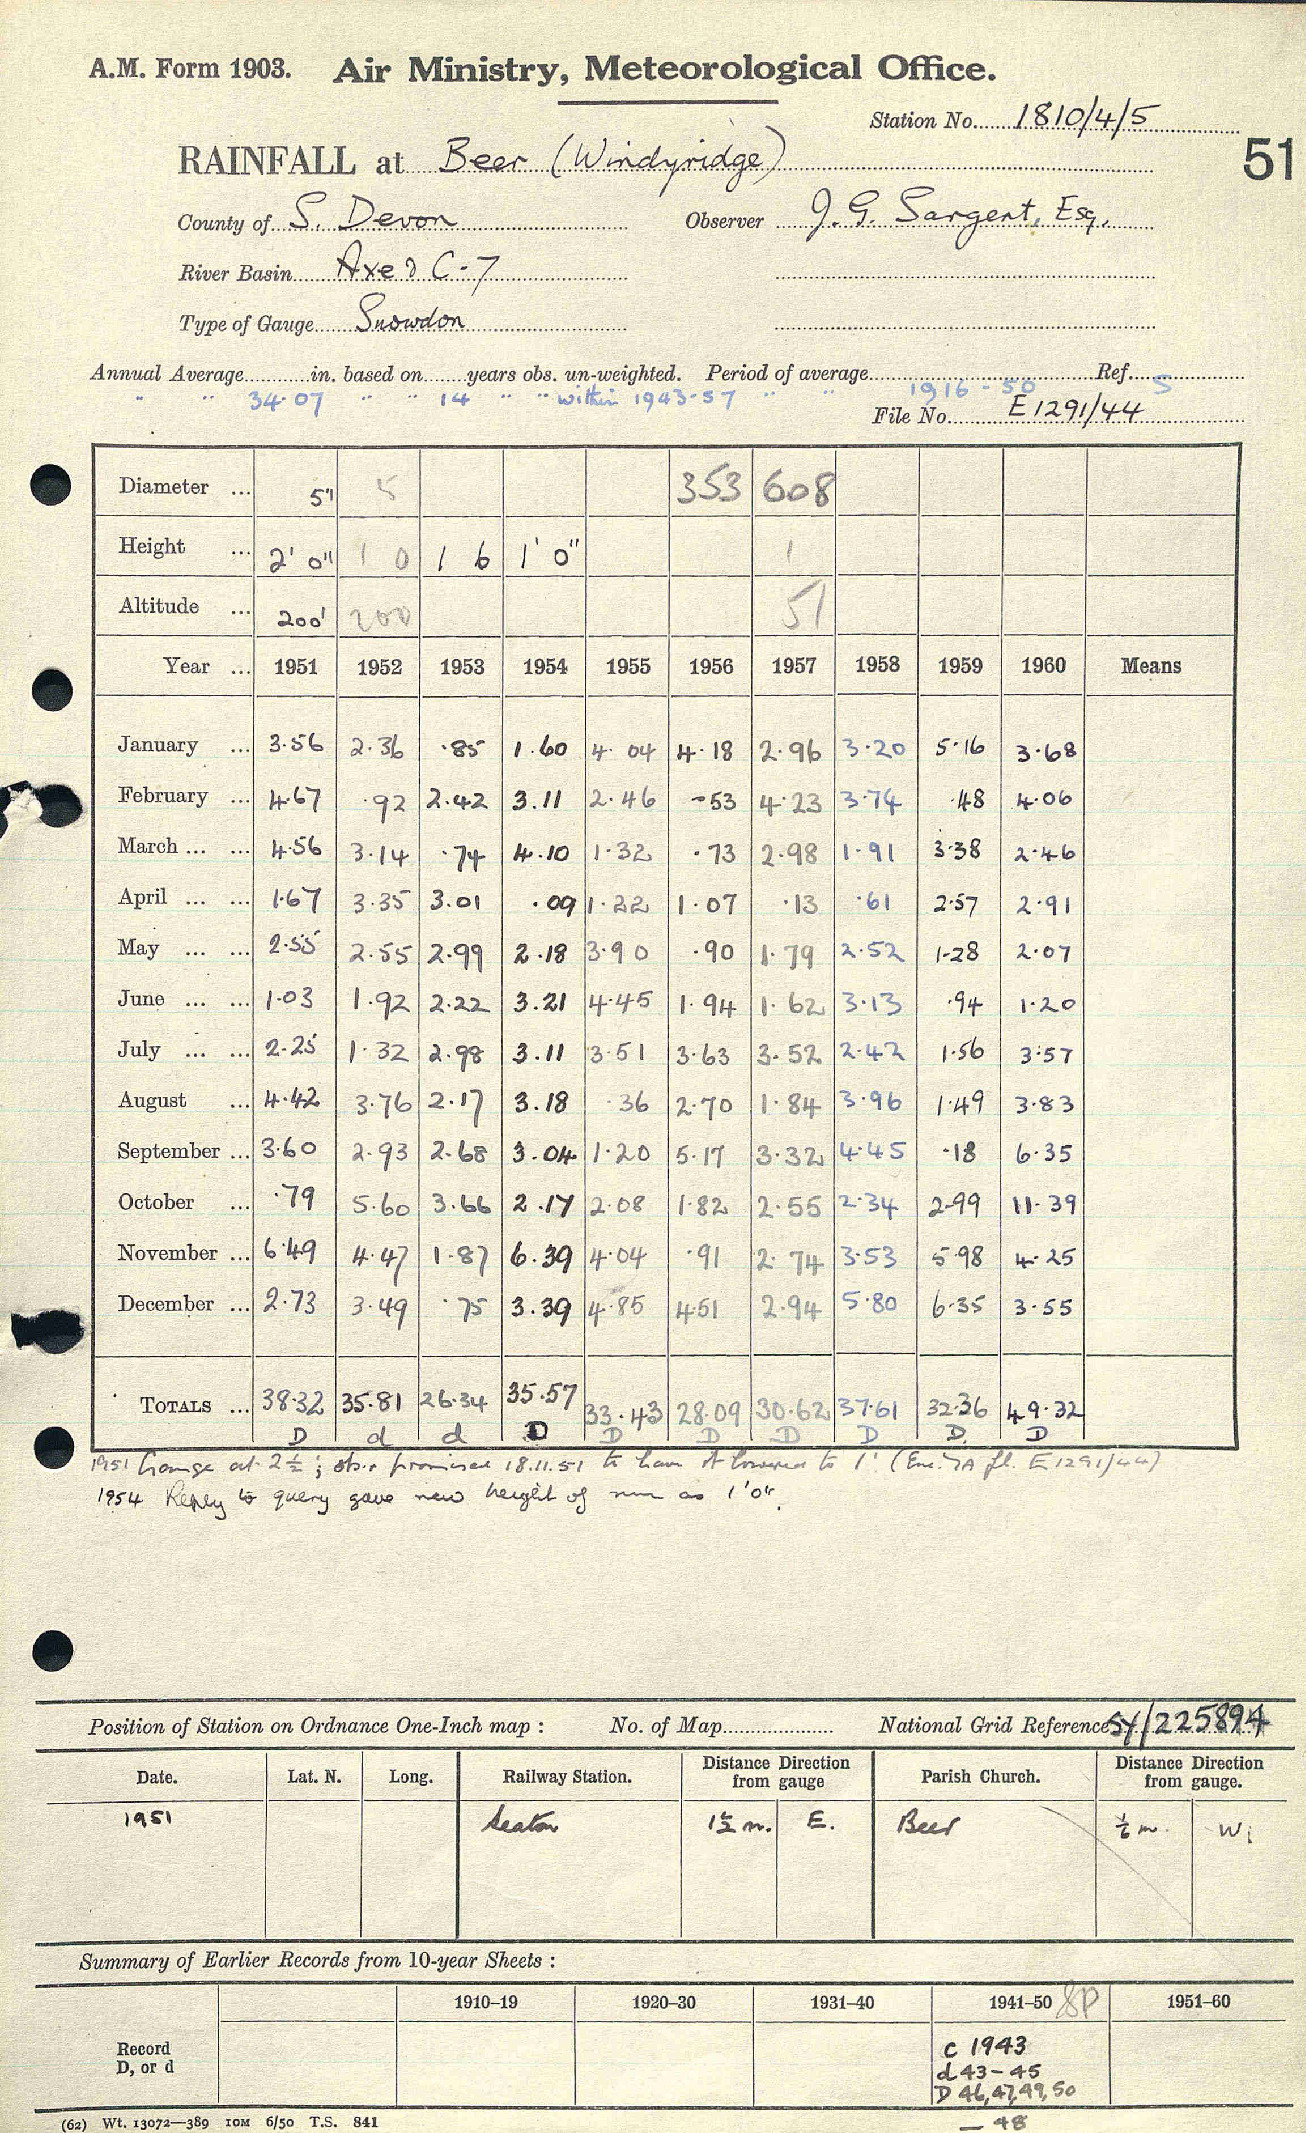 A.M. Form 1903. Air Ministry, Meteorological Office.
Station No. 1810/4/5
RAINFALL at Beer (Windyridge)
51
County of S. Devon Observer J. G. Sargent, Esq.
River Basin Axe & C-7
Type of Gauge Snowdon
Annual Average in. based on years obs. un-weighted. Period of average Ref.
" " 34.07 " " 14 " " within 1943-57 " " 1916-50 S
File No. E1291/44
Diameter ... 5" 5 353 608
Height ... 2' 0" 1 0 1 6 1' 0" 1
Altitude ... 200' 200 51
Year ... 1951 1952 1953 1954 1955 1956 1957 1958 1959 1960 Means
January ... 3.56 2.36 .85 1.60 4.04 4.18 2.96 3.20 5.16 3.68
February ... 4.67 .92 2.42 3.11 2.46 .53 4.23 3.74 .48 4.06
March ... ... 4.56 3.14 .74 4.10 1.32 .73 2.98 1.91 3.38 2.46
April ... ... 1.67 3.35 3.01 .09 1.22 1.07 .13 .61 2.57 2.91
May ... ... 2.55 2.55 2.99 2.18 3.90 .90 1.79 2.52 1.28 2.07
June ... ... 1.03 1.92 2.22 3.21 4.45 1.94 1.62 3.13 .94 1.20
July ... ... 2.25 1.32 2.98 3.11 3.51 3.63 3.52 2.42 1.56 3.57
August ... 4.42 3.76 2.17 3.18 .36 2.70 1.84 3.96 1.49 3.83
September ... 3.60 2.93 2.68 3.04 1.20 5.17 3.32 4.45 .18 6.35
October ... .79 5.60 3.66 2.17 2.08 1.82 2.55 2.34 2.99 11.39
November ... 6.49 4.47 1.87 6.39 4.04 .91 2.74 3.53 5.98 4.25
December ... 2.73 3.49 .75 3.39 4.85 4.51 2.94 5.80 6.35 3.55
TOTALS ... 38.32 35.81 26.34 35.57 33.43 28.09 30.62 37.61 32.36 49.32
D d d D D D D D D. D
1951 Gauge at 2½; obsr promised 18.11.51 to have it lowered to 1' (E1291/44)
1954 Reply to query gave new height of rim as 1'0".
Position of Station on Ordnance One-Inch map : No. of Map National Grid Reference SY/225894
Date. Lat. N. Long. Railway Station. Distance Direction from gauge Parish Church. Distance Direction from gauge.
1951 Seaton 1½ m. E. Beer W.
Summary of Earlier Records from 10-year Sheets :
1910–19 1920–30 1931–40 1941–50 1951–60
Record D, or d
C 1943
d 43-45
D 46,47,49,50
— 48
(62) Wt. 13072—389 10M 6/50 T.S. 841